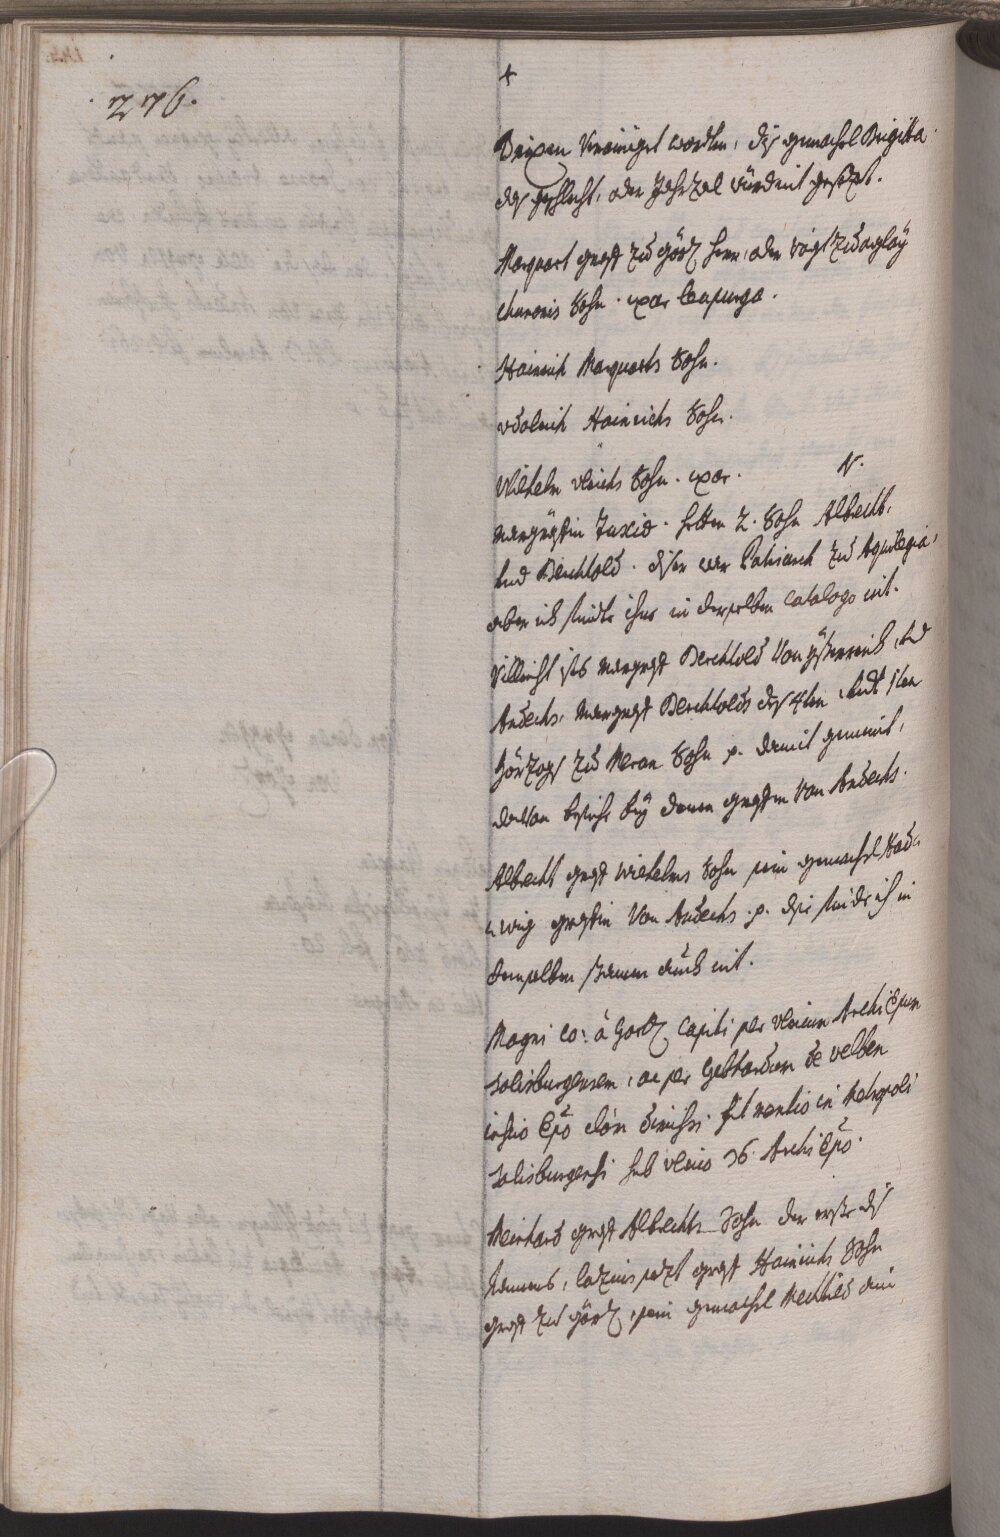 276.
Brixen Vereiniget worden, diß gemachel Brigitta
des geschlecht, oder Jahrzal würdt nit gesezt.
Marquart graff zu Görz herr, oder Vogt zu aglaÿ
Sohn. uxor Leapurga.
Hainrich Marquarts Sohn.
Vdalrich Hainrichs Sohn.
Wilhelm Vlrichs Sohn. uxor. N.
Marggräffin hetten 2. Sohn Albrecht,
und Berchtold. diser war Patriarch zu Aquilegia,
aber ich findte ihne in derselben Catalogo nit.
Villeicht ists Marggraff Berchtold Von Ÿsterreich, und
Andechs, Marggraff Berchtolds des 4ten
Hörzogs zu Meran Sohn p. damit gemeint,
darvon besiche beÿ denen graffen Von Andechs.
Albrecht graff Wilhelms Sohn sein gemachel Had-
wig gräffin Von Andechs. p. die finde ich in
demselben stamen auch nit.
Magni Co: à Görz Capiti per Vlricum ArchiEpum
Salisburgensem, ac per Gebhardum de Velben
Epo dimissi. fit mentio in Metropoli
Salisburgensi sub Vlrico 36. ArchiEpo.
Meinhard graff Albrechts Sohn der erste diß
Namens, Lazius sezt graff Hainrichs Sohn
graff zu Görz, sein gemachel Mechtild ein